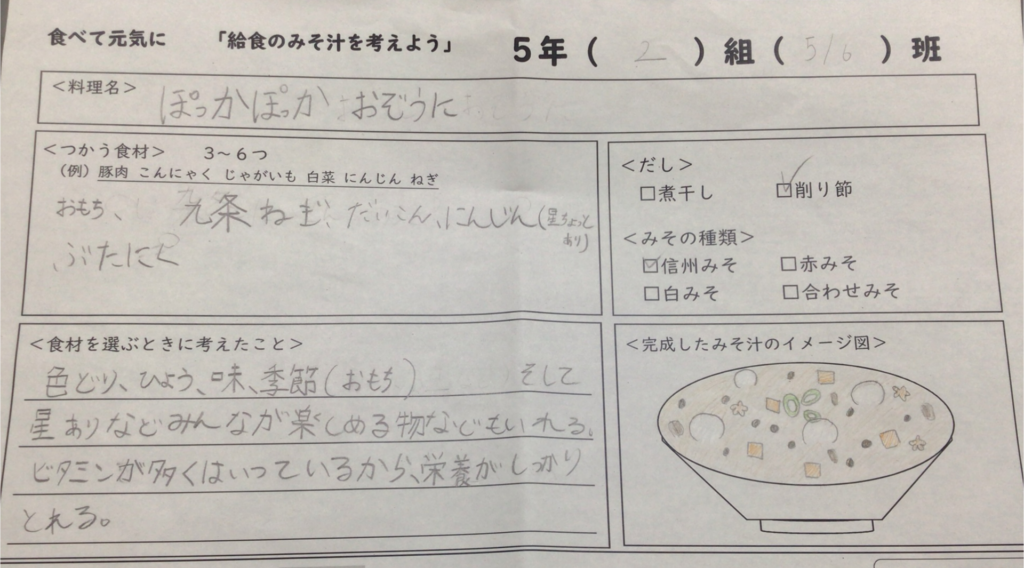 食べて元気に 「給食のみそ汁を考えよう」 5年( 2 )組( 5/6 )班
<料理名>
ぽっかぽっか おぞうに
<つかう食材> 3~6つ
(例)豚肉 こんにゃく じゃがいも 白菜 にんじん ねぎ
おもち、九条ねぎ、だいこん、にんじん(星ちょっと
あり)
ぶたにく
<だし>
□煮干し ☑削り節
<みその種類>
☑信州みそ □赤みそ
□白みそ □合わせみそ
<食材を選ぶときに考えたこと>
色どり、ひよう、味、季節(おもち) そして
星ありなどみんなが楽しめる物などもいれる。
ビタミンが多くはいっているから、栄養がしっかり
とれる。
<完成したみそ汁のイメージ図>